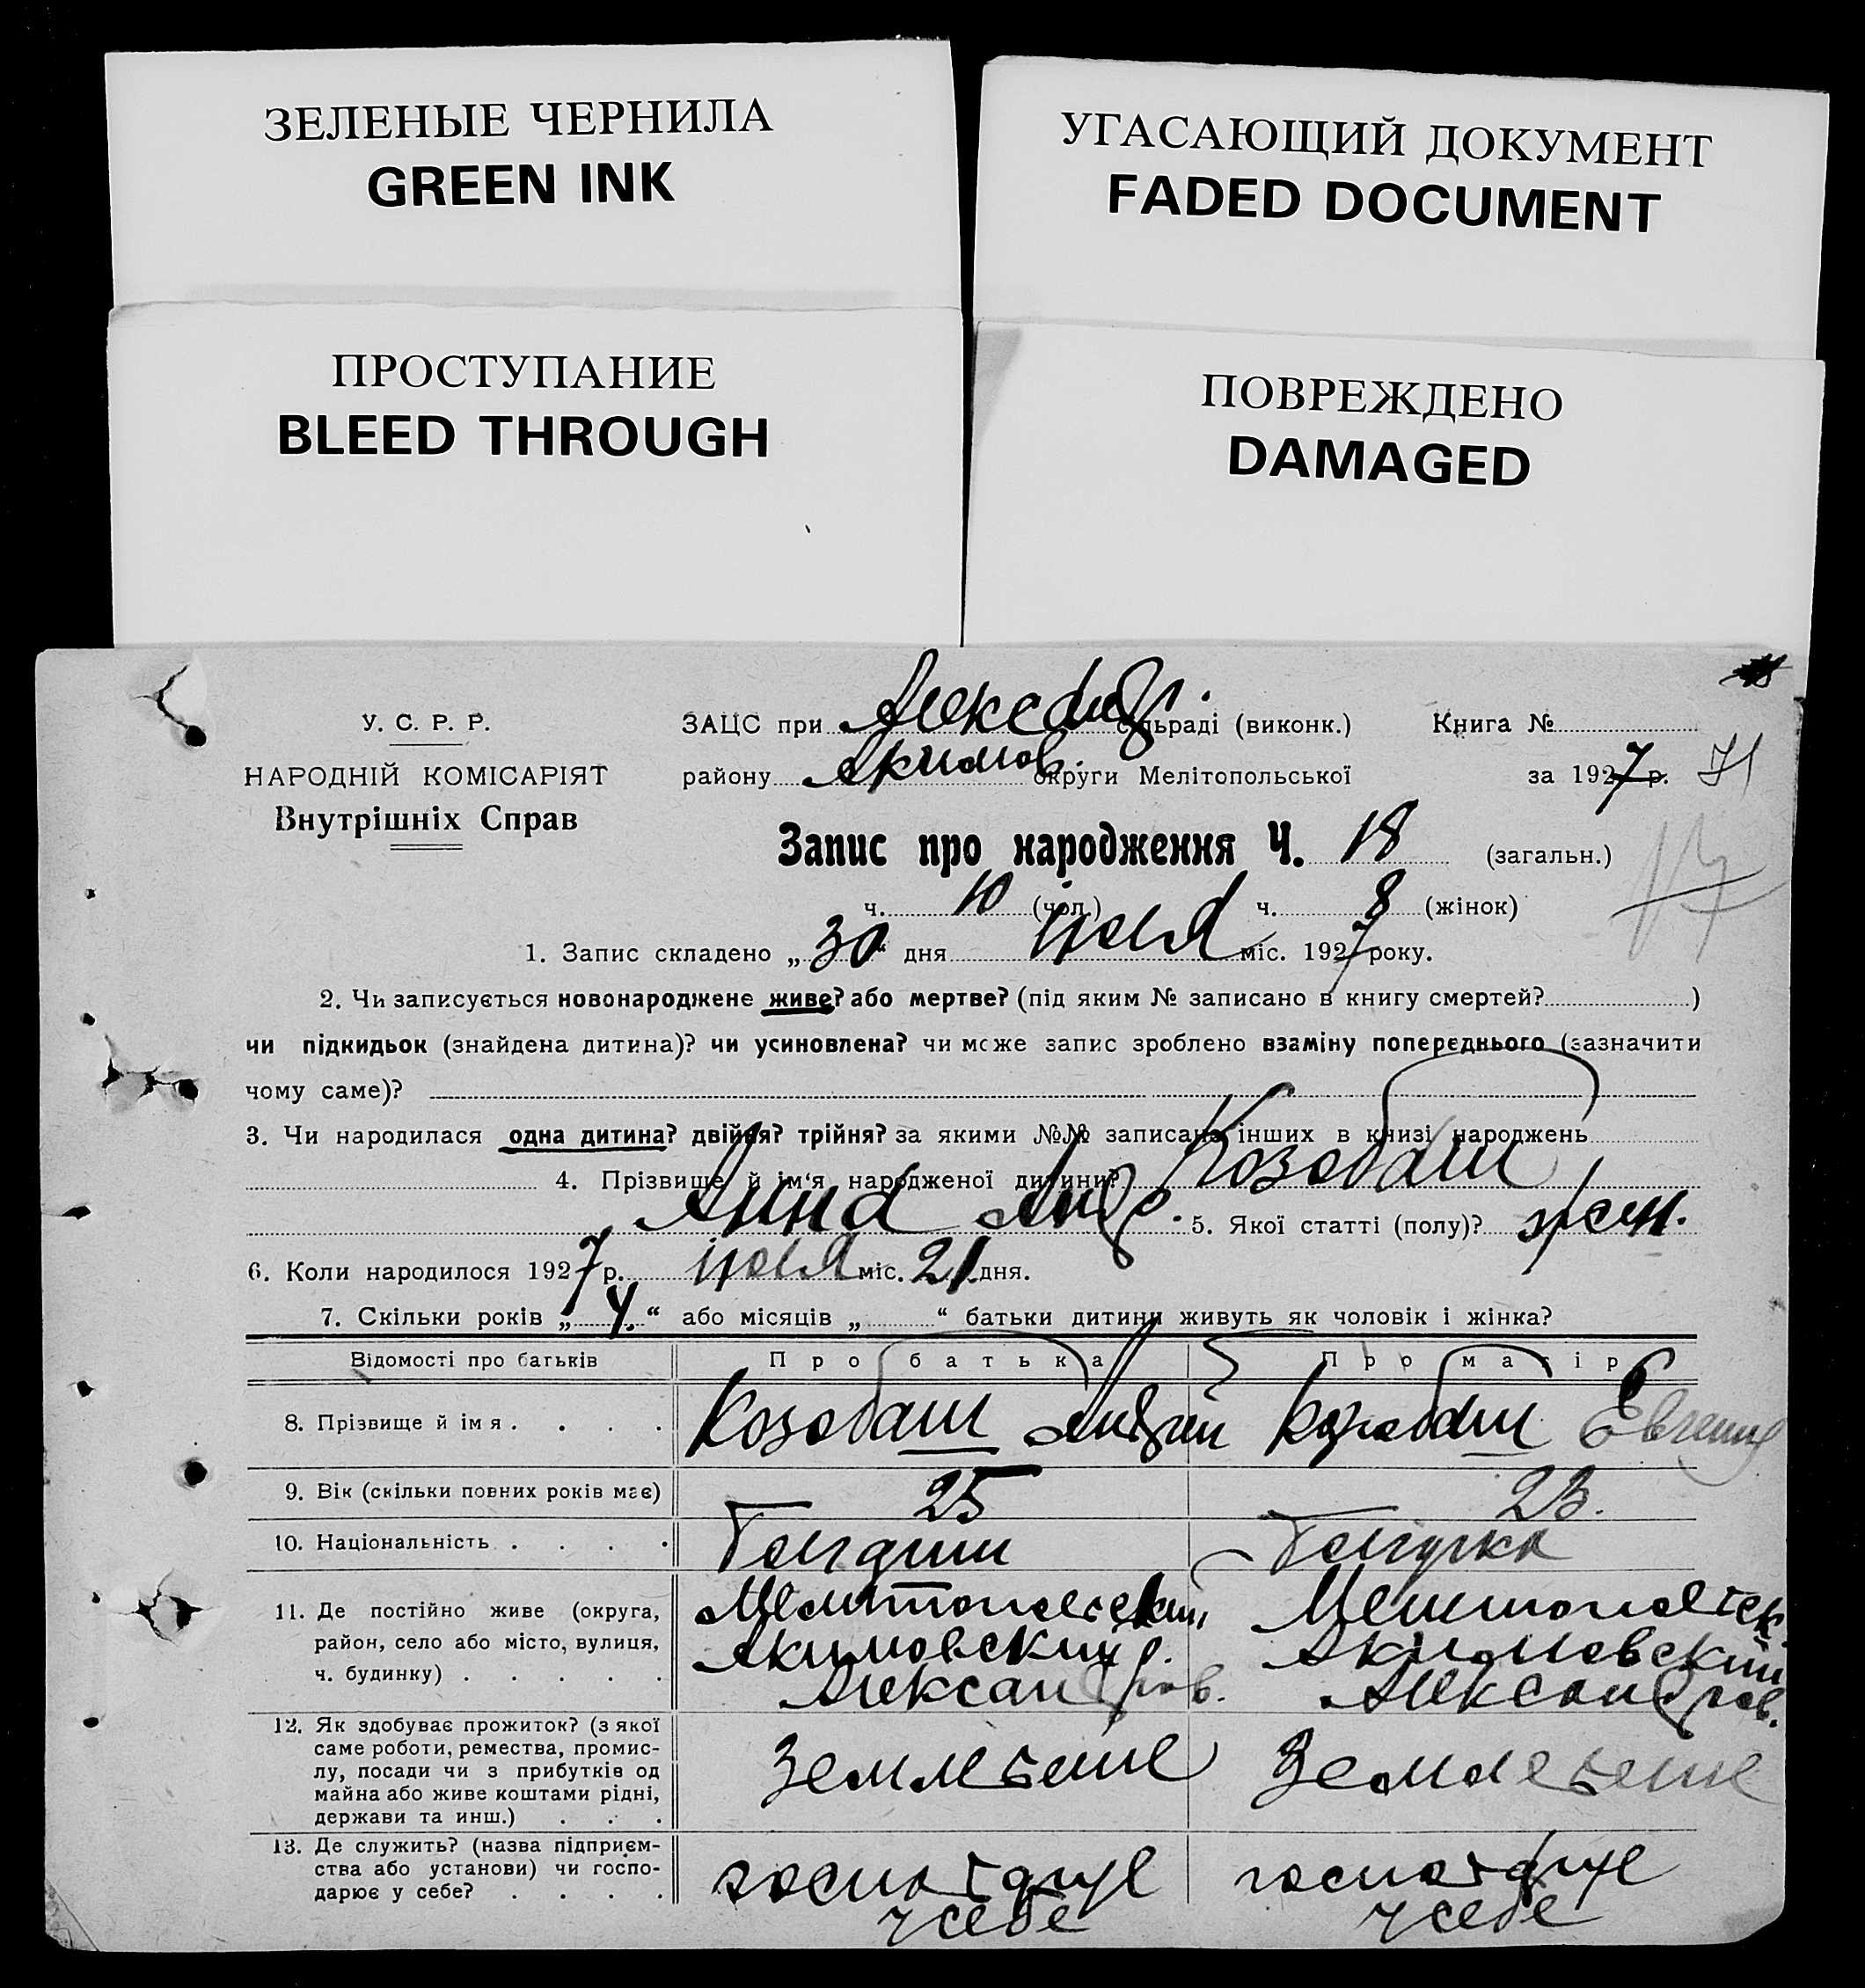 ЗЕЛЕНЫЕ ЧЕРНИЛА
GREEN INK
УГАСАЮЩИЙ ДОКУМЕНТ
FADED DOCUMENT
ПРОСТУПАНИЕ
BLEED THROUGH
ПОВРЕЖДЕНО
DAMAGED
У. С. Р. Р.
НАРОДНІЙ КОМІСАРІЯТ
Внутрішніх Справ
ЗАЦС при Александр. сільраді (виконк.) Книга №
району Акимов. округи Мелітопольської за 1927 р. 71
Запис про народження Ч. 18 (загальн.)
ч. 10 (чол.) ч. 8 (жінок) 17
1. Запис складено „30“ дня міс. 1927 року.
2. Чи записується новонароджене живе? або мертве? (під яким № записано в книгу смертей? )
чи підкидьок (знайдена дитина)? чи усиновлена? чи може запис зроблено взаміну попереднього (зазначити
чому саме)?
3. Чи народилася одна дитина? двійня? трійня? за якими №№ записано інших в книзі народжень
4. Прізвище й ім‘я народженої дитини? Козобаш
Анна Андр. 5. Якої статті (полу)? жен.
6. Коли народилося 1927 р. міс. 21 дня.
7. Скільки років „4.“ або місяців „ “ батьки дитини живуть як чоловік і жінка?
Відомості про батьків Про батька Про матір
8. Прізвище й імя . . . . Козобаш Андрій Козобаш Евгения
9. Вік (скільки повних років має) 25 23.
10. Національність . . . . Болгарин Болгарка
11. Де постійно живе (округа,
район, село або місто, вулиця,
ч. будинку) . . . . .
Мелитопольский Мелитопольск.
Акимовский р. Акимовский
Александров. Александров.
12. Як здобуває прожиток? (з якої
саме роботи, ремества, промис-
лу, посади чи з прибутків од
майна або живе коштами рідні,
держави та инш.) . . .
13. Де служить? (назва підприєм-
ства або установи) чи госпо-
дарює у себе? . . . .
господарує господарує
у себе у себе